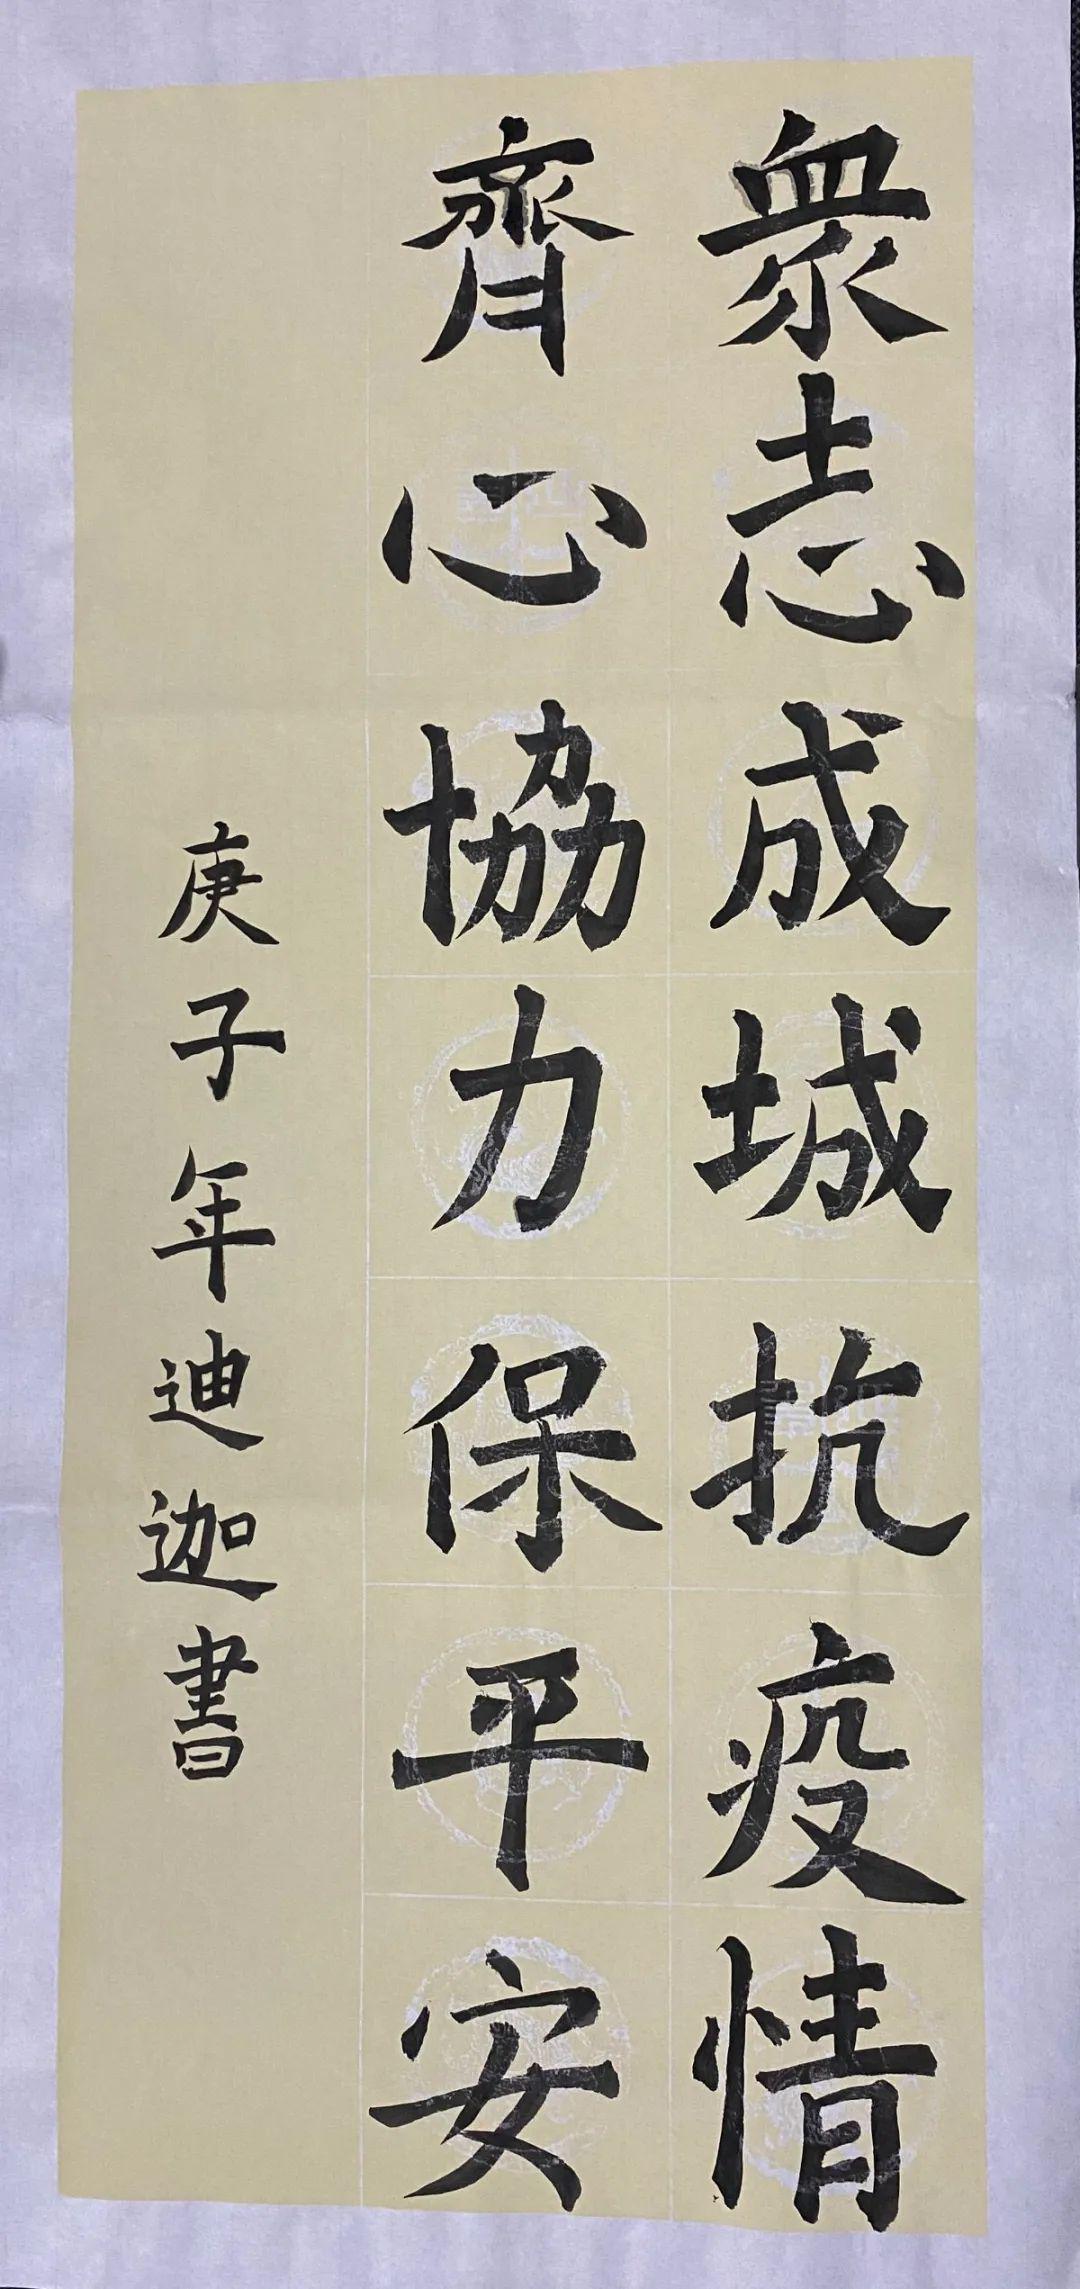 衆志成城抗疫情
齊心協力保平安
庚子年迪迦書